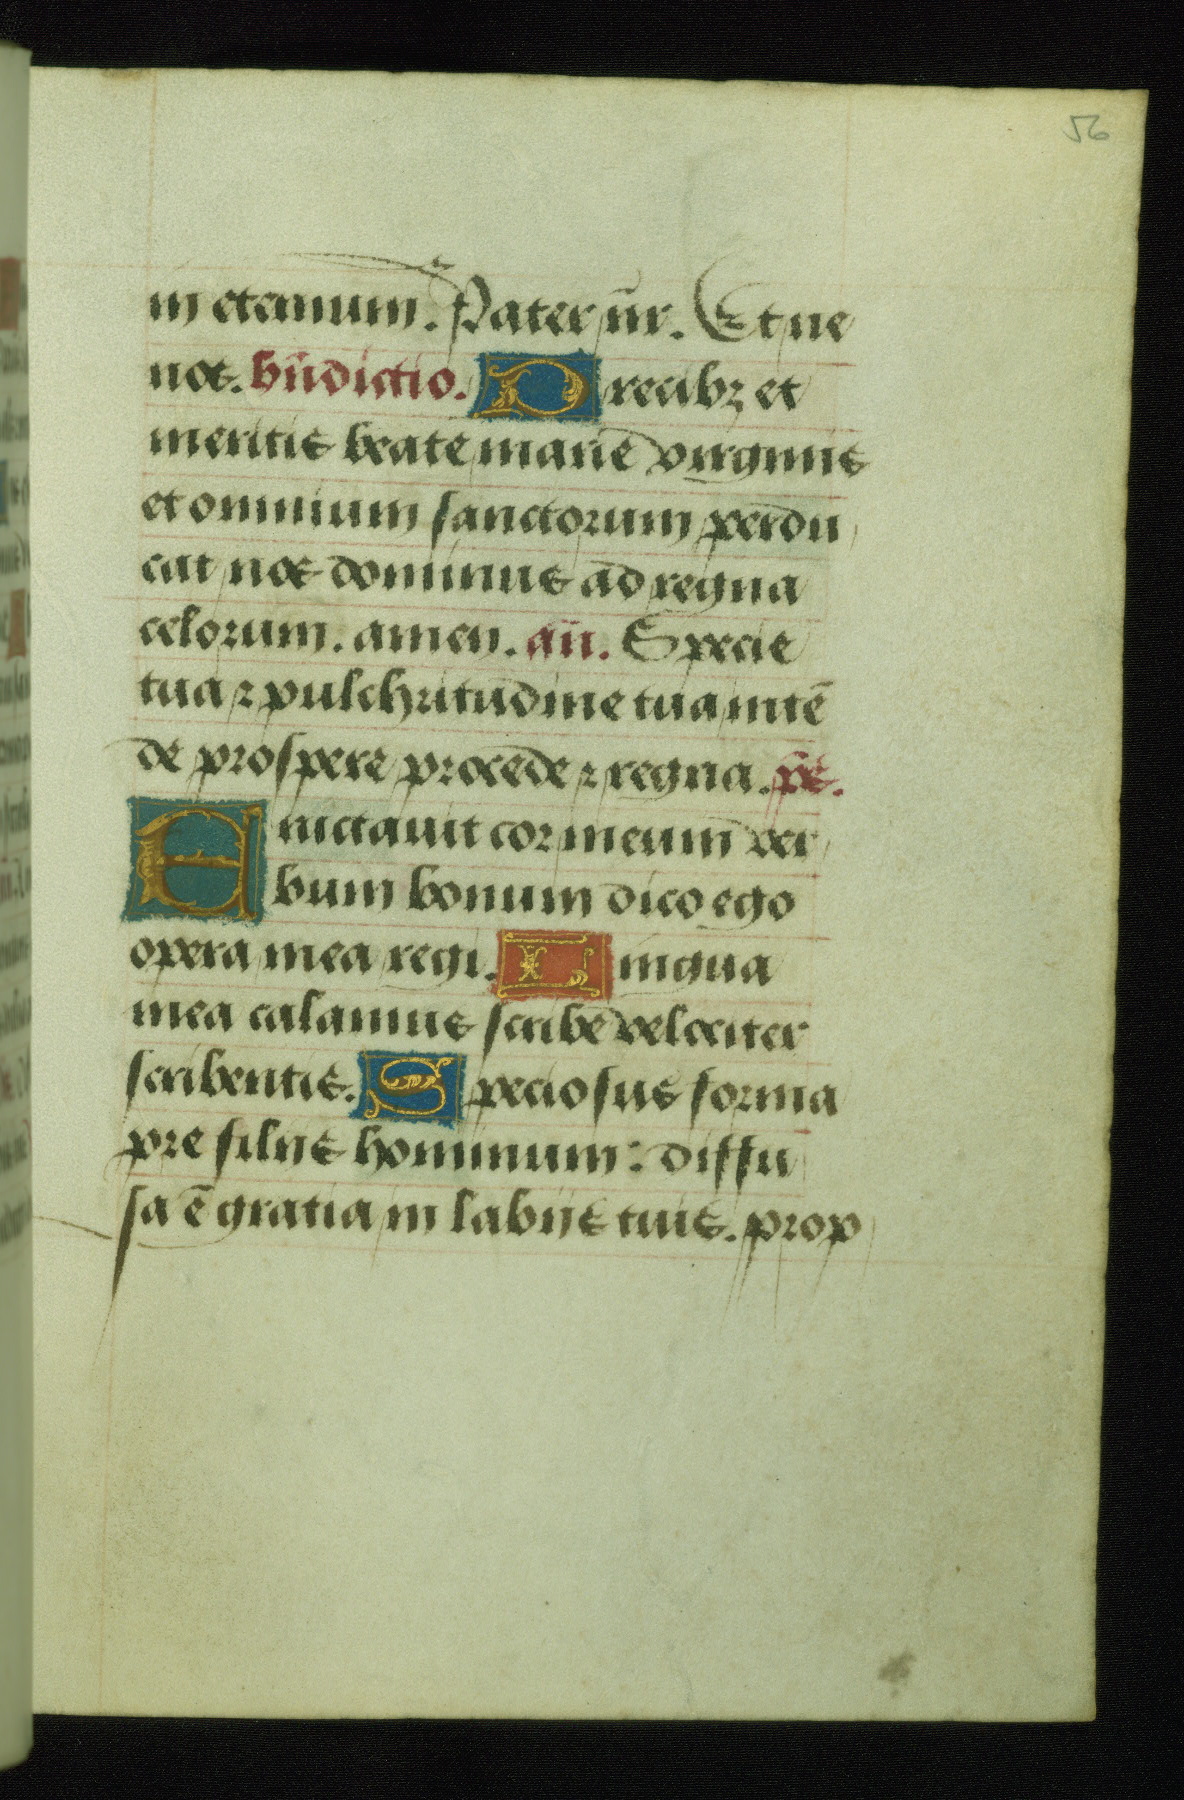 56
in eternum. Pater nr̄. Et ne
nos. bn̄dictio. Precibꝫ et
meritis beate marie virginis
et omnium sanctorum perdu
cat nos dominus ad regna
celorum. amen. an̄. Specie
tua ⁊ pulchritudine tua intē
de prospere procede ⁊ regna. ps̄.
Eructauit cor meum ver
bum bonum dico ego
opera mea regi. Lingua
mea calamus scribe velociter
scribentis. Speciosus forma
pre filijs hominum: diffu
sa ē gratia in labijs tuis. prop